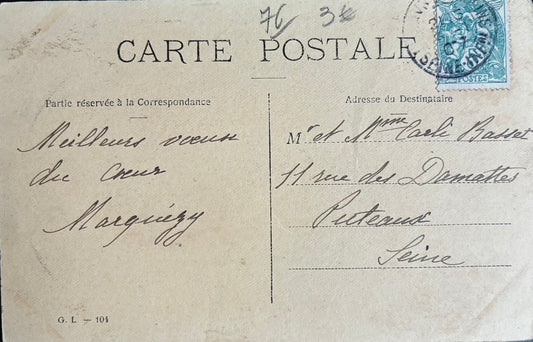 76 3€
CARTE POSTALE
POSTES
Partie réservée à la Correspondance
Adresse du Destinataire
Meilleurs vœux
du Cœur
Marguézy
Mr et Mme Carli Basset
11 rue des Damattes
Puteaux
Seine
G. I. — 104